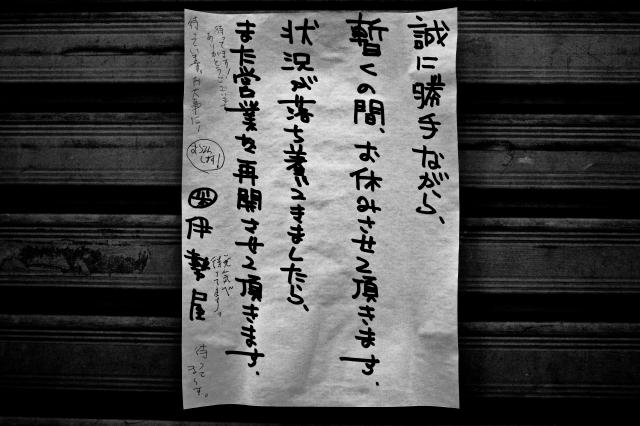 誠に勝手ながら、
暫くの間、お休みさせて頂きます。
状況が落ち着いてきましたら、
また営業を再開させて頂きます。
伊勢屋
待ってます!
ありがとうございます
待っています。お大事に!
元気で
待ってます。
待って
ます。